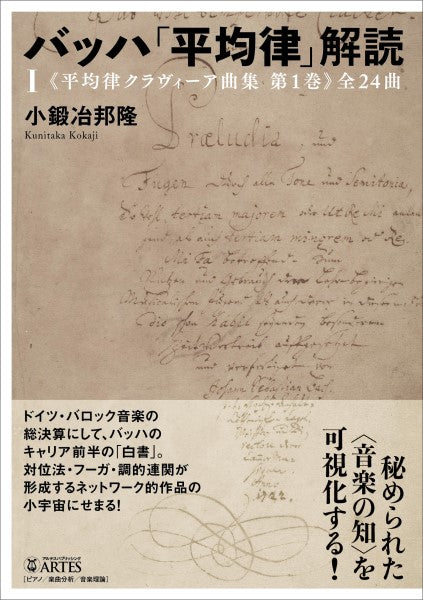 バッハ「平均律」解読
I《平均律クラヴィーア曲集 第1巻》全24曲
小鍛冶邦隆
Kunitaka Kokaji
Præludia, und
Fugen durch alle Tone und Semitonia,
tertiam majorem oder Ut Re Mi
tertiam minorem oder Re
Mi Fa betreffend. Zum
Nutzen und Gebrauch der Lehrbegierigen
Musicalischen
Johann Sebastian Bach
1722
秘められた
〈音楽の知〉を
可視化する!
ドイツ・バロック音楽の
総決算にして、バッハの
キャリア前半の「白書」。
対位法・フーガ・調的連関が
形成するネットワーク的作品の
小宇宙にせまる!
アルテスパブリッシング
ARTES
[ピアノ/楽曲分析/音楽理論]